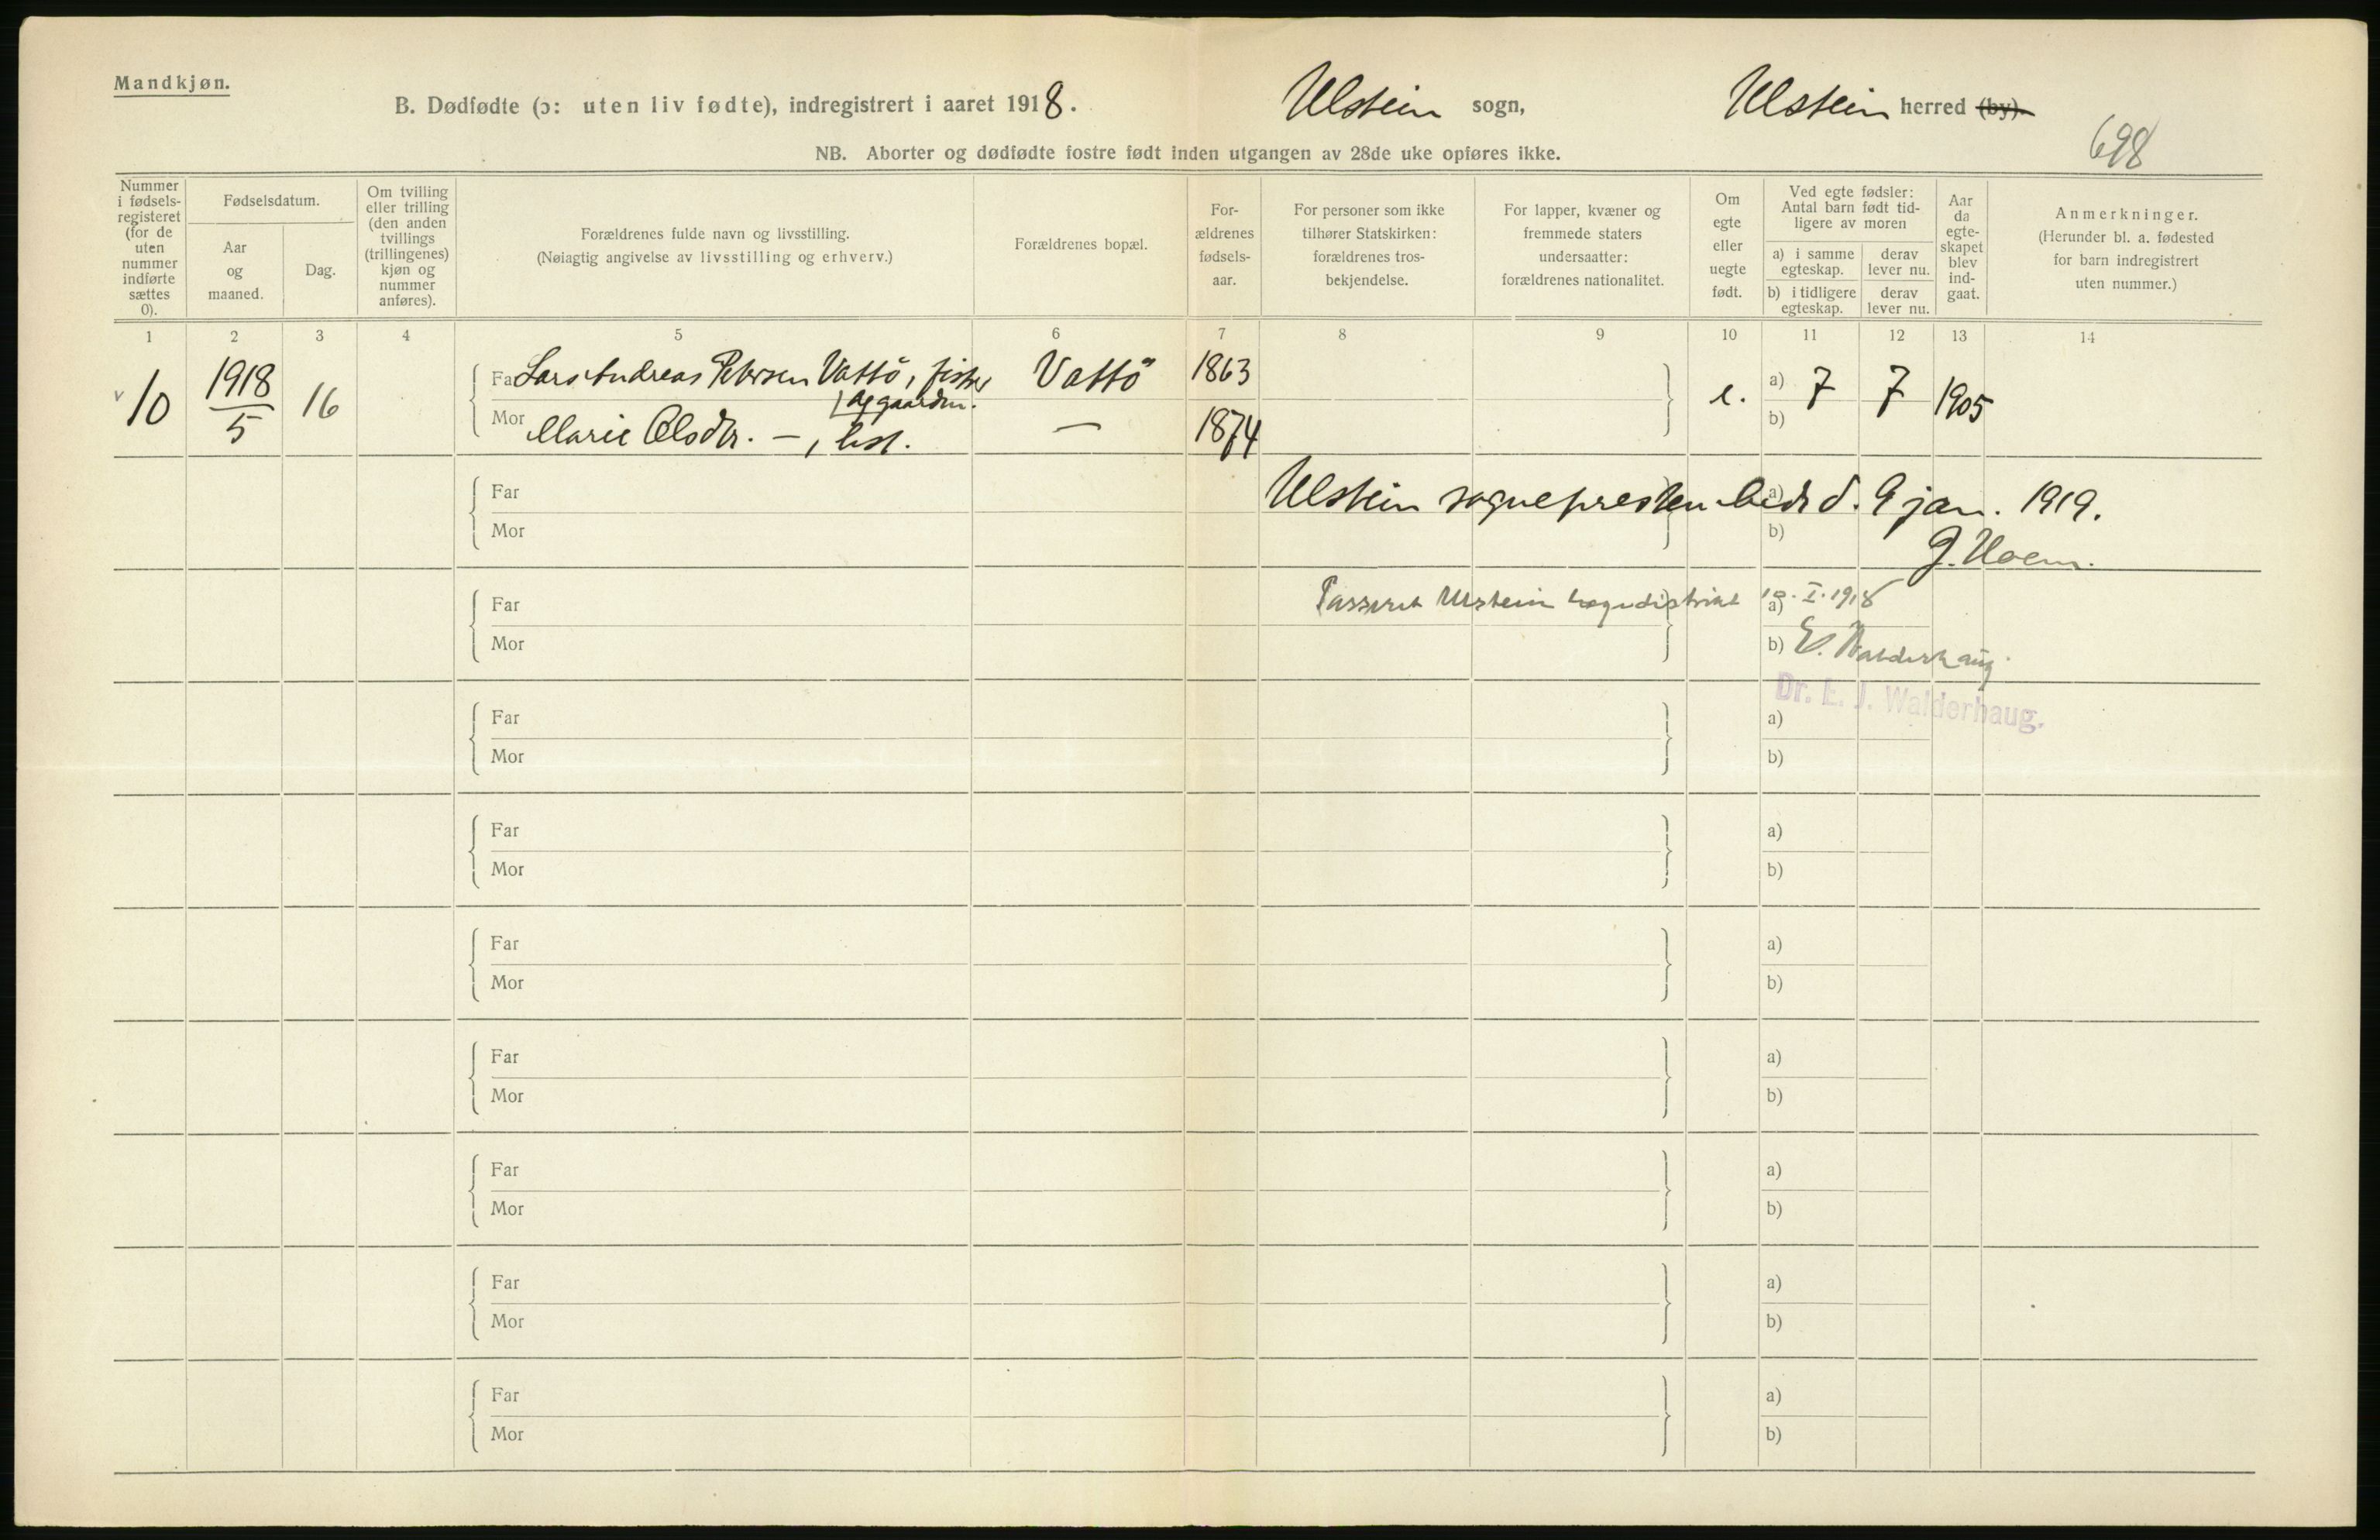 Mandkjøn.
B. Dødfødte (ɔ: uten liv fødte), indregistrert i aaret 1918. Ulstein sogn, Ulstein herred (by).
698
NB. Aborter og dødfødte fostre født inden utgangen av 28de uke opføres ikke.
Nummer i fødsels-registeret (for de uten nummer indførte sættes 0).
Fødselsdatum.
Aar og maaned.
Dag.
Om tvilling eller trilling (den anden tvillings (trillingenes) kjøn og nummer anføres).
Forældrenes fulde navn og livsstilling.
(Nøiagtig angivelse av livsstilling og erhverv.)
Forældrenes bopæl.
For-ældrenes fødsels-aar.
For personer som ikke tilhører Statskirken: forældrenes tros-bekjendelse.
For lapper, kvæner og fremmede staters undersaatter: forældrenes nationalitet.
Om egte eller uegte født.
Ved egte fødsler: Antal barn født tid-ligere av moren
a) i samme egteskap.
derav lever nu.
b) i tidligere egteskap.
derav lever nu.
Aar da egte-skapet blev ind-gaat.
Anmerkninger.
(Herunder bl. a. fødested for barn indregistrert uten nummer.)
1 2 3 4 5 6 7 8 9 10 11 12 13 14
v 10 1918/5 16
Far Lars Andreas Petersen Vattö, fisker Vattö 1863
og gaardm.
Mor Marie Olsdtr. — , hst. — 1874
e. a) 7 7 1905
b)
Far
Mor
Ulstein sogneprestembede d. 9 jan. 1919.
a)
b)
J. Hoem.
Far
Mor
Passeret Ulstein lægedistrikt 10.I.1918
a)
b) E. Walderhaug
Dr. E. J. Walderhaug.
Far a)
Mor b)
Far a)
Mor b)
Far a)
Mor b)
Far a)
Mor b)
Far a)
Mor b)
Far a)
Mor b)
Far a)
Mor b)